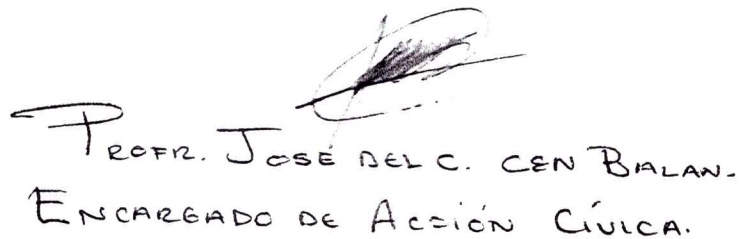 PROFR. JOSÉ DEL C. CEN BALAN.
ENCARGADO DE ACCIÓN CÍVICA.